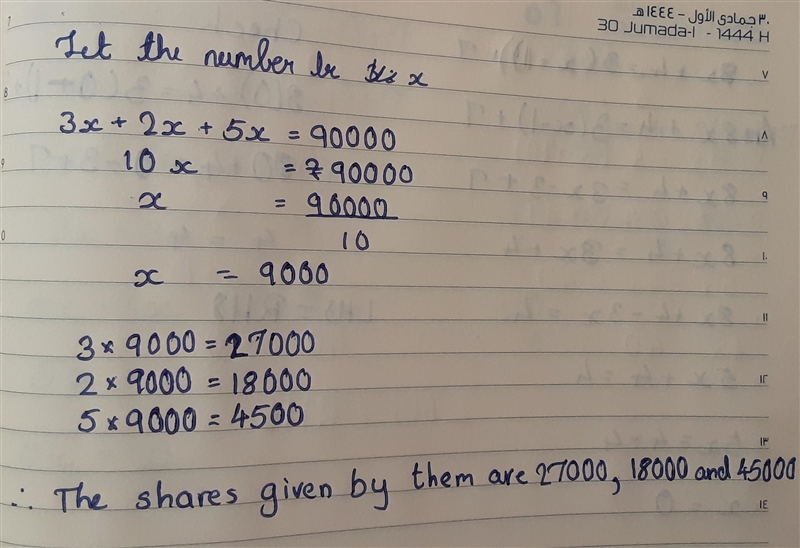 ٣٠ جمادى الأول - ١٤٤٤ هـ
30 Jumada-I - 1444 H
Let the number be x
3x + 2x + 5x = 90000
10 x = 90000
x = 90000
10
x = 9000
3 × 9000 = 27000
2 × 9000 = 18000
5 × 9000 = 4500
∴ The shares given by them are 27000, 18000 and 45000
7
8
9
0
٧
٨
٩
١٠
١١
١٢
١٣
١٤